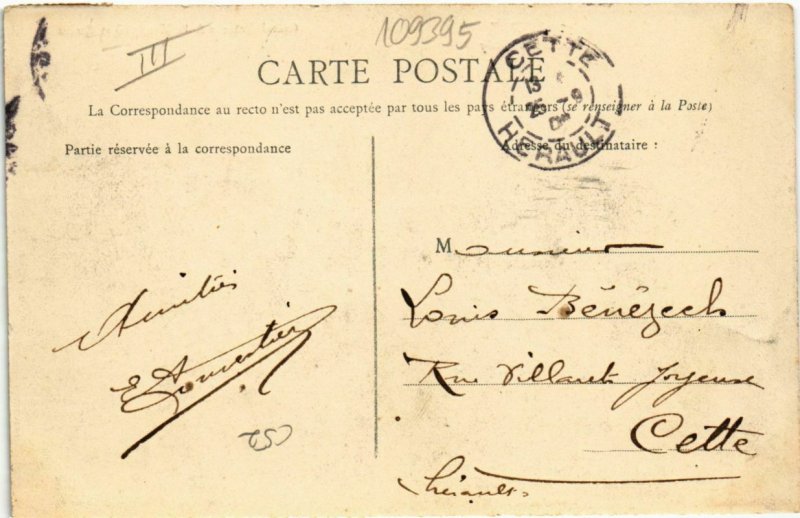 109395
III
CETTE
HERAULT
CARTE POSTALE
La Correspondance au recto n'est pas acceptée par tous les pays étrangers (se renseigner à la Poste)
Partie réservée à la correspondance
Adresse du destinataire :
Amitiés
Monsieur
Louis Bénézech
Rue Villaret Joyeuse
Cette
Hérault